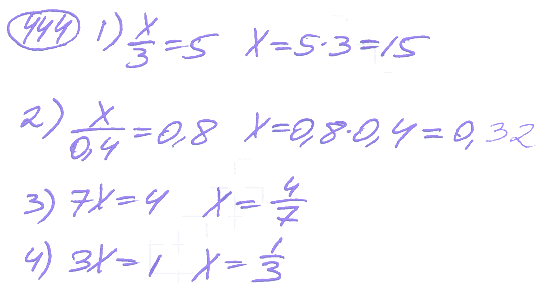 444 1) x/3 = 5 x = 5·3 = 15
2) x/0,4 = 0,8 x = 0,8·0,4 = 0,32
3) 7x = 4 x = 4/7
4) 3x = 1 x = 1/3